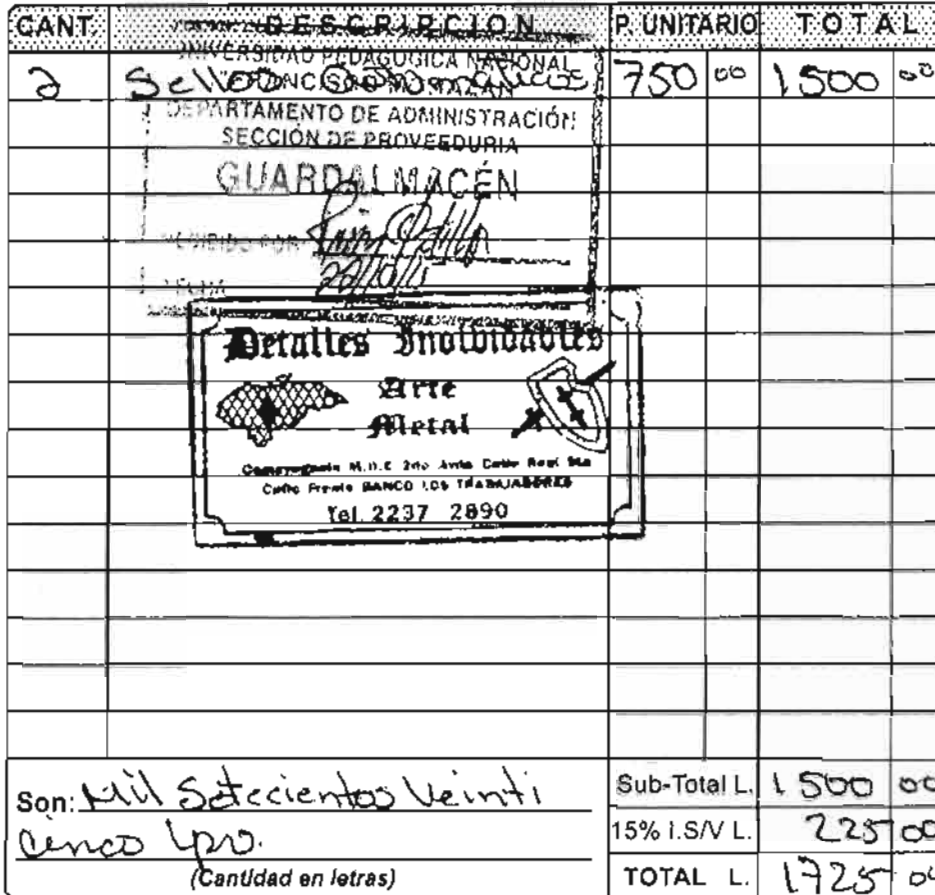 CANT. DESCRIPCION P. UNITARIO TOTAL
UNIVERSIDAD PEDAGOGICA NACIONAL
2 Sellos automaticos 750 00 1500 00
DEPARTAMENTO DE ADMINISTRACIÓN
SECCIÓN DE PROVEEDURIA
GUARDALMACÉN
RECIBIDO POR
FECHA
Detalles Inolvidables
Arte
Metal
Comayaguela M.D.C. 2da Avda Calle Real 5ta
Calle Frente BANCO LOS TRABAJADORES
Tel. 2237 2890
Son: Mil Setecientos Veinti
cinco Lps.
(Cantidad en letras)
Sub-Total L. 1500 00
15% I.S/V L. 225 00
TOTAL L. 1725 00